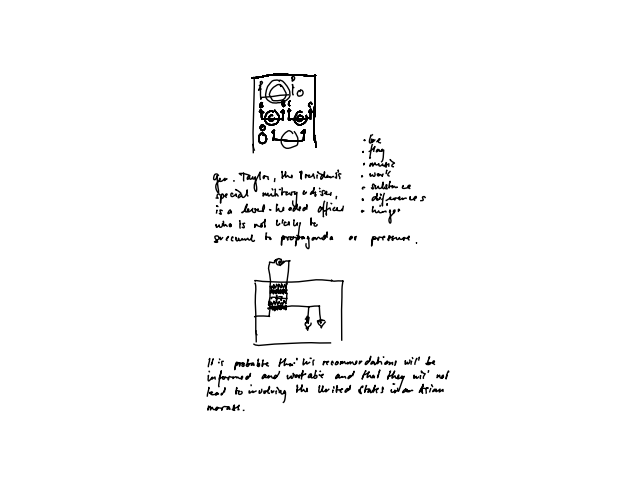 Gen. Taylor, the President's
special military adviser,
is a level-headed officer
who is not likely to
succumb to propaganda or pressure.
• flag
• music
• work
• substance
• differences
It is probable that his recommendations will be
informed and workable and that they will not
lead to involving the United States in an Asian
morass.